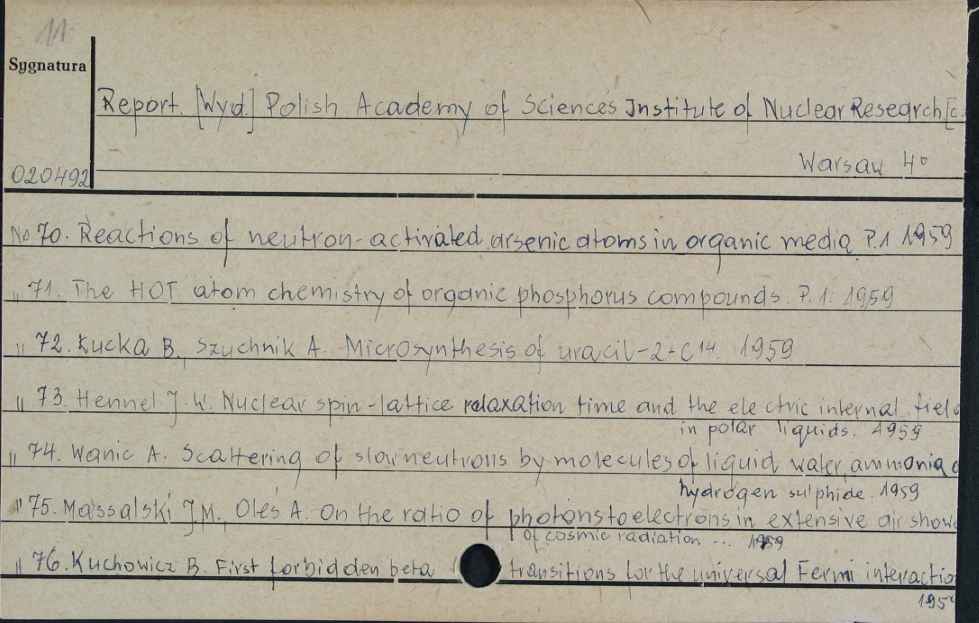 11
Sygnatura
Report. [Wyd.] Polish Academy of Sciences Institute of Nuclear Research [c.
Warsaw 4°
020492
No 70. Reactions of neutron-activated arsenic atoms in organic media P.1 1959
" 71. The HOT atom chemistry of organic phosphorus compounds. P.1: 1959
" 72. Łucka B., Szuchnik A. Microsynthesis of uracil-2-C14. 1959
" 73. Hennel J.W. Nuclear spin-lattice relaxation time and the electric internal field
in polar liquids. 1959
" 74. Wanic A. Scattering of slow neutrons by molecules of liquid water, ammonia
hydrogen sulphide. 1959
" 75. Massalski J.M., Oleś A. On the ratio of photons to electrons in extensive air show
of cosmic radiation ... 1959
" 76. Kuchowicz B. First forbidden beta transitions for the universal Fermi interactio
195